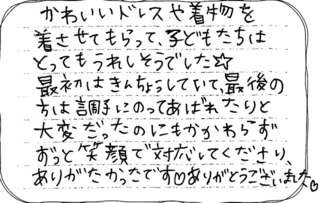 かわいいドレスや着物を
着させてもらって、子どもたちは
とってもうれしそうでした☆
最初はきんちょうしていて、最後の
方は調子にのってあばれたりと
大変だったのにもかかわらず
ずっと笑顔で対応してくださり、
ありがたかったです♡ありがとうございました♡